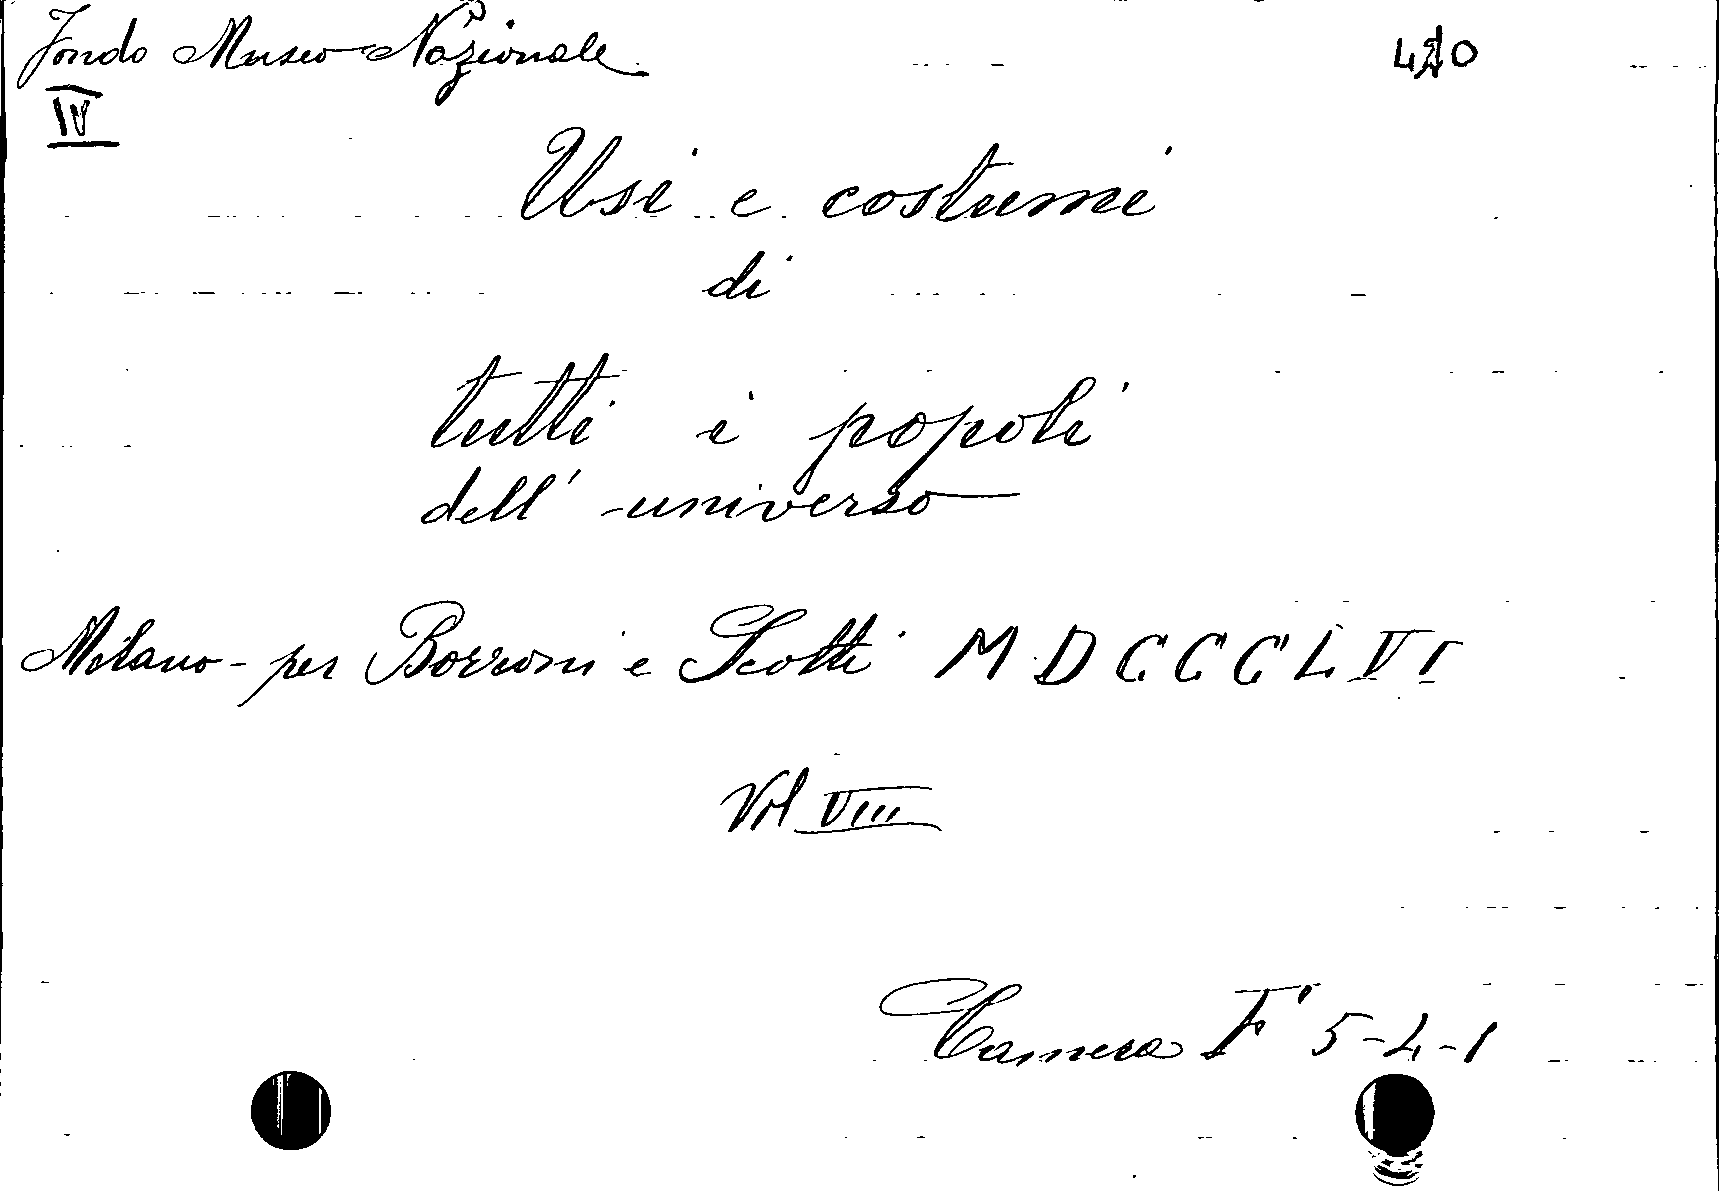 Fondo Museo Nazionale
IV
Usi e costumi
di
tutti i popoli
dell' universo
Milano - per Borroni e Scotti MDCCCLVI
Vol VIII
Camera F' 5-4-1